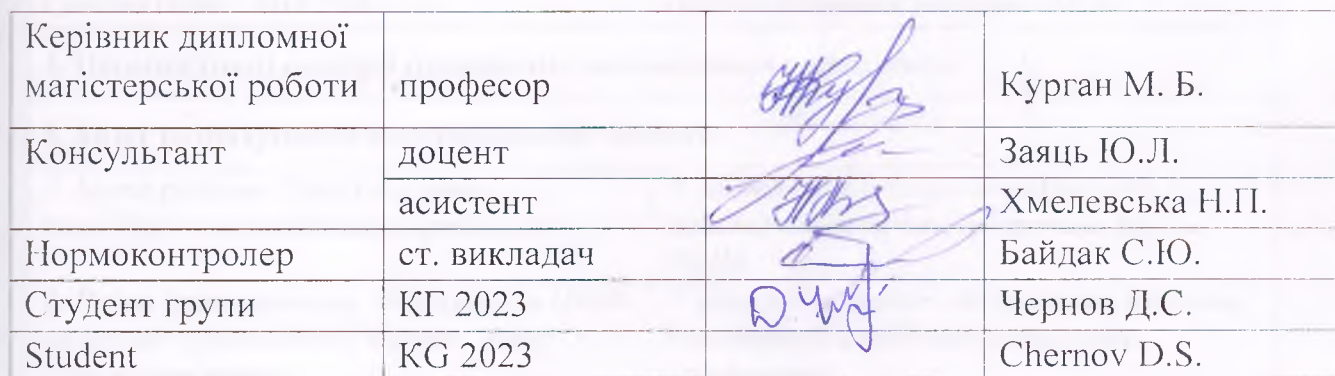 Керівник дипломної
магістерської роботи професор Курган М. Б.
Консультант доцент Заяць Ю.Л.
асистент Хмелевська Н.П.
Нормоконтролер ст. викладач Байдак С.Ю.
Студент групи КГ 2023 Чернов Д.С.
Student KG 2023 Chernov D.S.